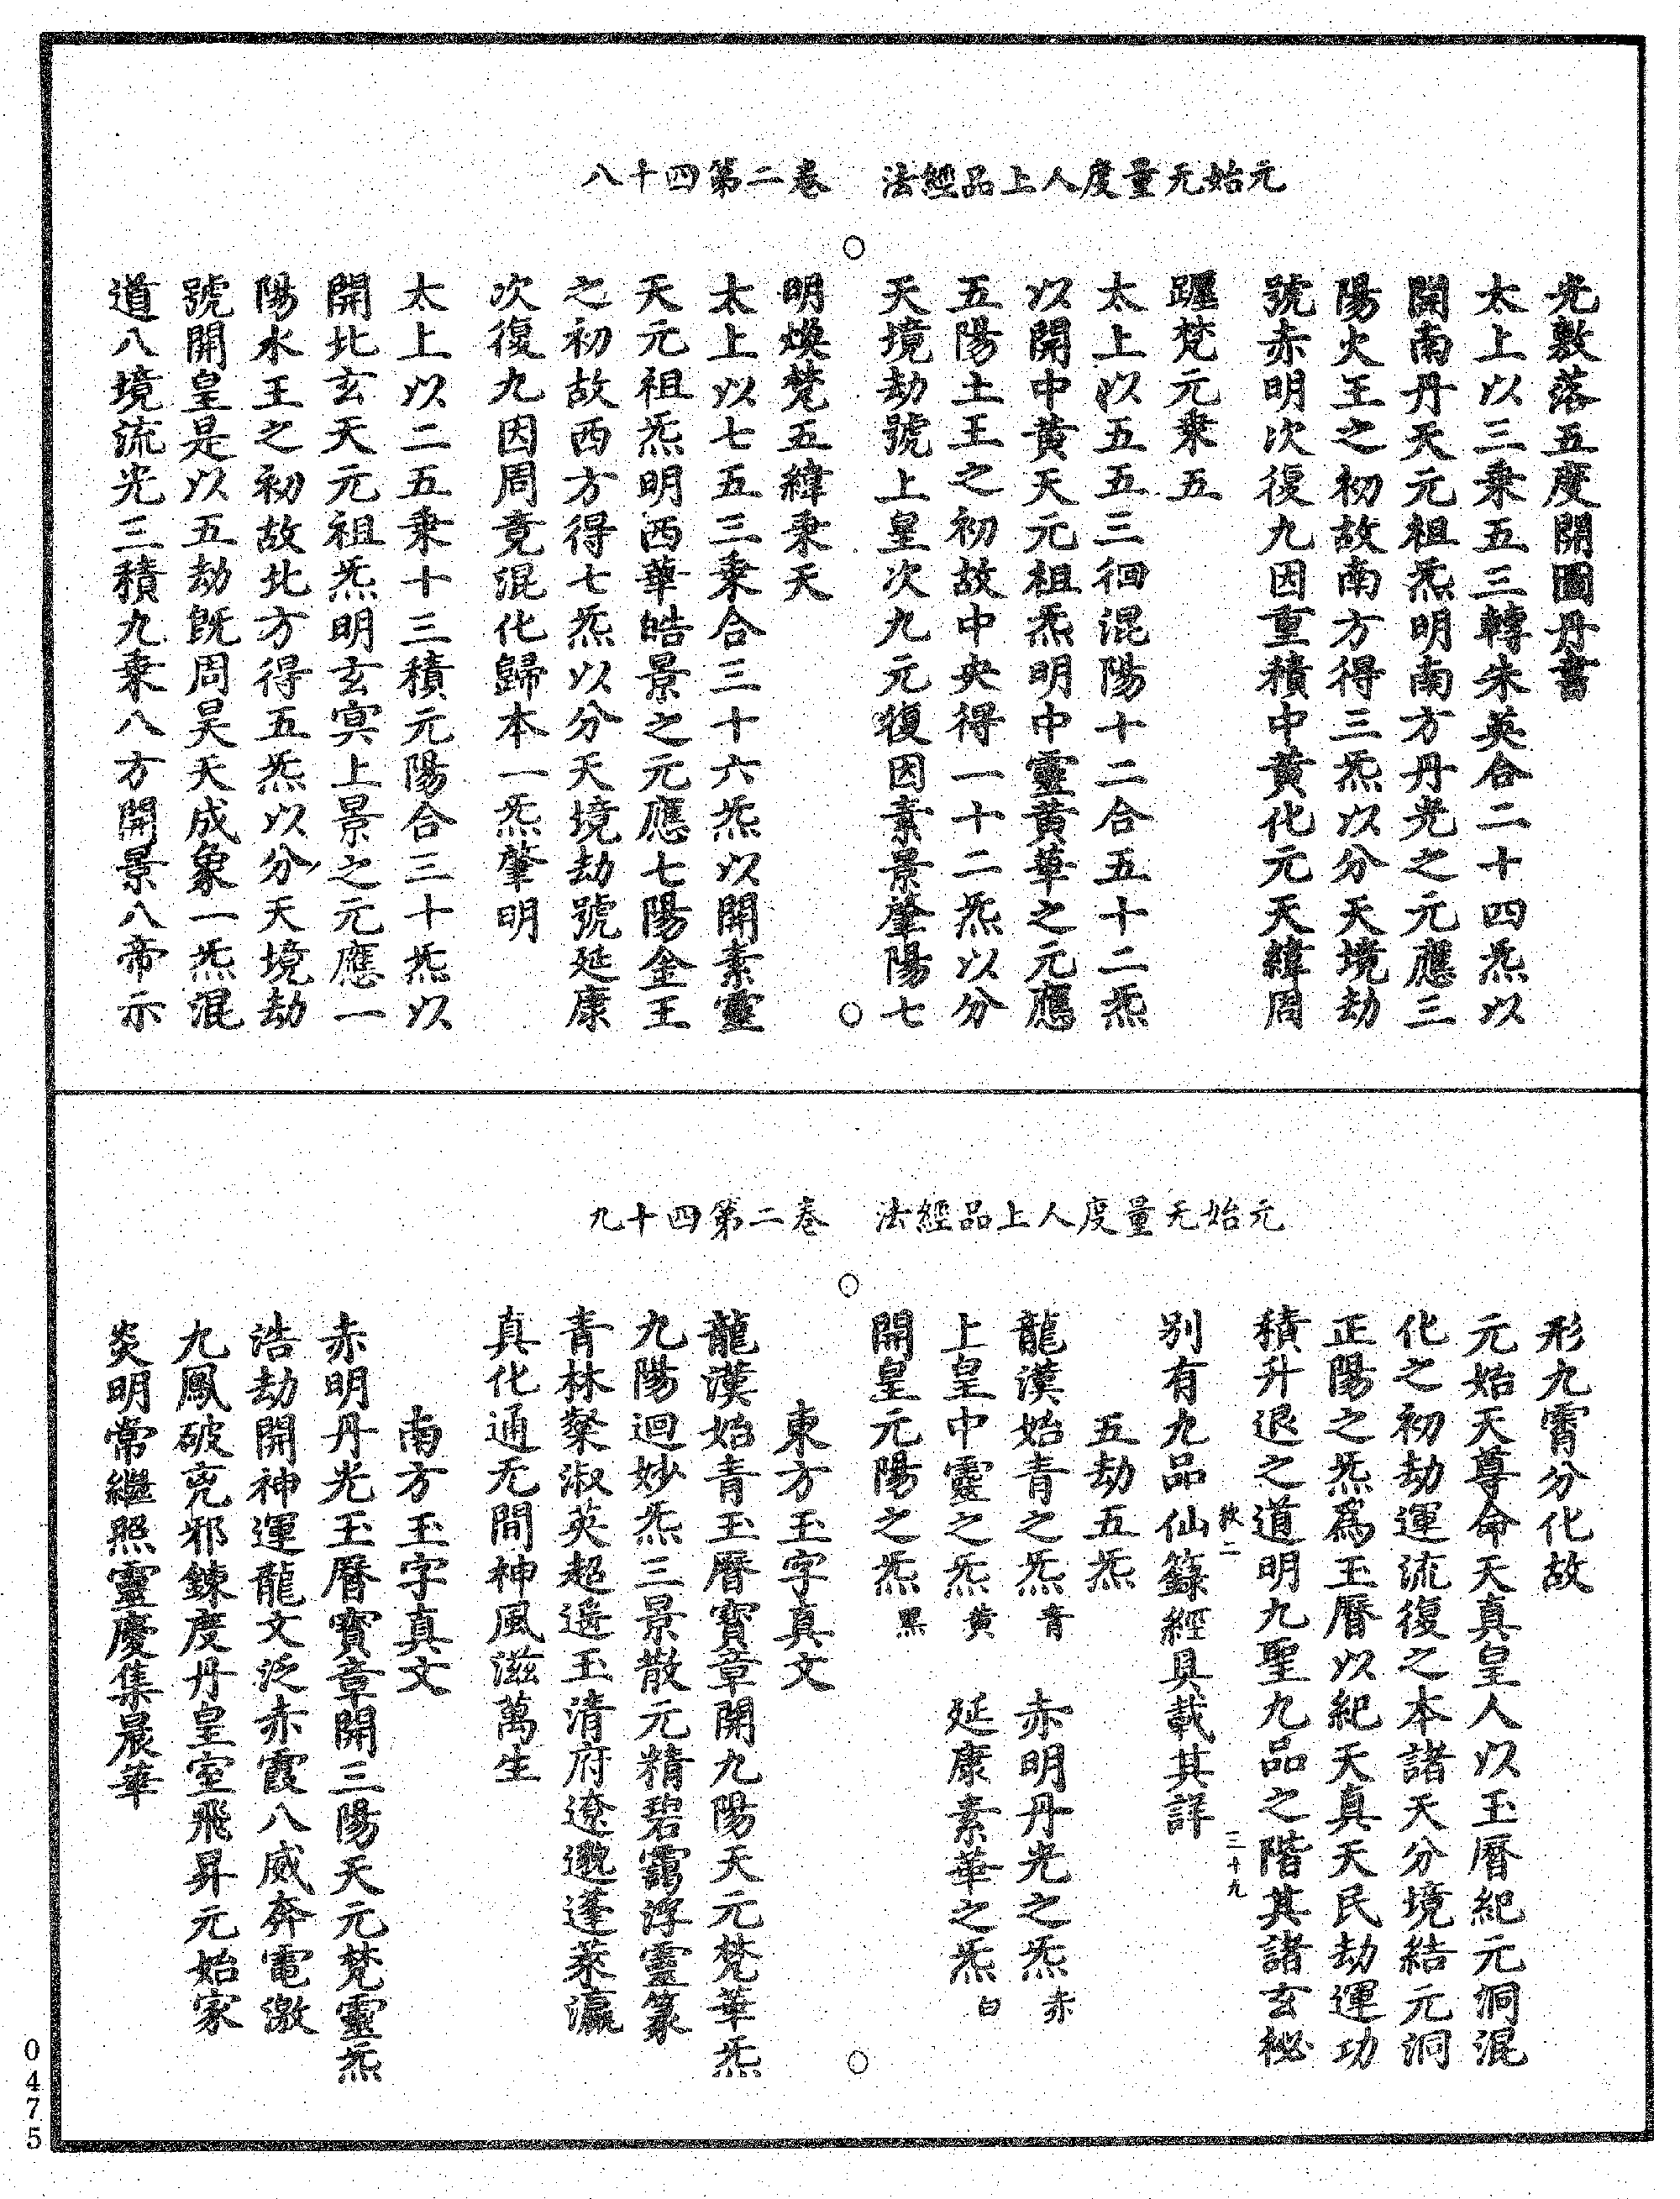 元始无量度人上品經法　卷二第四十八
光敷落五度開圖丹書
太上以三乗五三轉朱英合二十四炁以
開南丹天元祖炁明南方丹光之元應三
陽火王之初故南方得三炁以分天境劫
號赤明次復九因重積中黄化元天緯周
躔梵元乗五
太上以五五三徊混陽十二合五十二炁
以開中黄天元祖炁明中靈黄華之元應
五陽土王之初故中央得一十二炁以分
天境劫號上皇次九元復因素景肇陽七
明煥梵五緯乗天
太上以七五三乗合三十六炁以開素靈
天元祖炁明西華皓景之元應七陽金王
之初故西方得七炁以分天境劫號延康
次復九因周竟混化歸本一炁肇明
太上以二五乗十三積元陽合三十炁以
開北玄天元祖炁明玄冥上景之元應一
陽水王之初故北方得五炁以分天境劫
號開皇是以五劫既周昊天成象一炁混
道八境流光三積九乗八方開景八帝示
元始无量度人上品經法　卷二第四十九
形九霄分化故
元始天尊命天真皇人以玉曆紀元洞混
化之初劫運流復之本諸天分境結元洞
正陽之炁爲玉曆以紀天真天民劫運功
積升退之道明九聖九品之階其諸玄祕
二 三十九
別有九品仙籙經具載其詳
五劫五炁
龍漢始青之炁青　赤明丹光之炁赤
上皇中靈之炁黄　延康素華之炁白
開皇元陽之炁黑
東方玉字真文
龍漢始青玉曆寳章開九陽天元梵華炁
九陽迴妙炁三景散元精碧靄浮靈篆
青林粲淑英超遥玉清府遼邈蓬萊瀛
真化通无間神風滋萬生
南方玉字真文
赤明丹光玉曆寳章開三陽天元梵靈炁
浩劫開神運龍文泛赤霞八威奔電激
九鳳破兇邪鍊度丹皇室飛昇元始家
炎明常繼照靈慶集晨華
0475